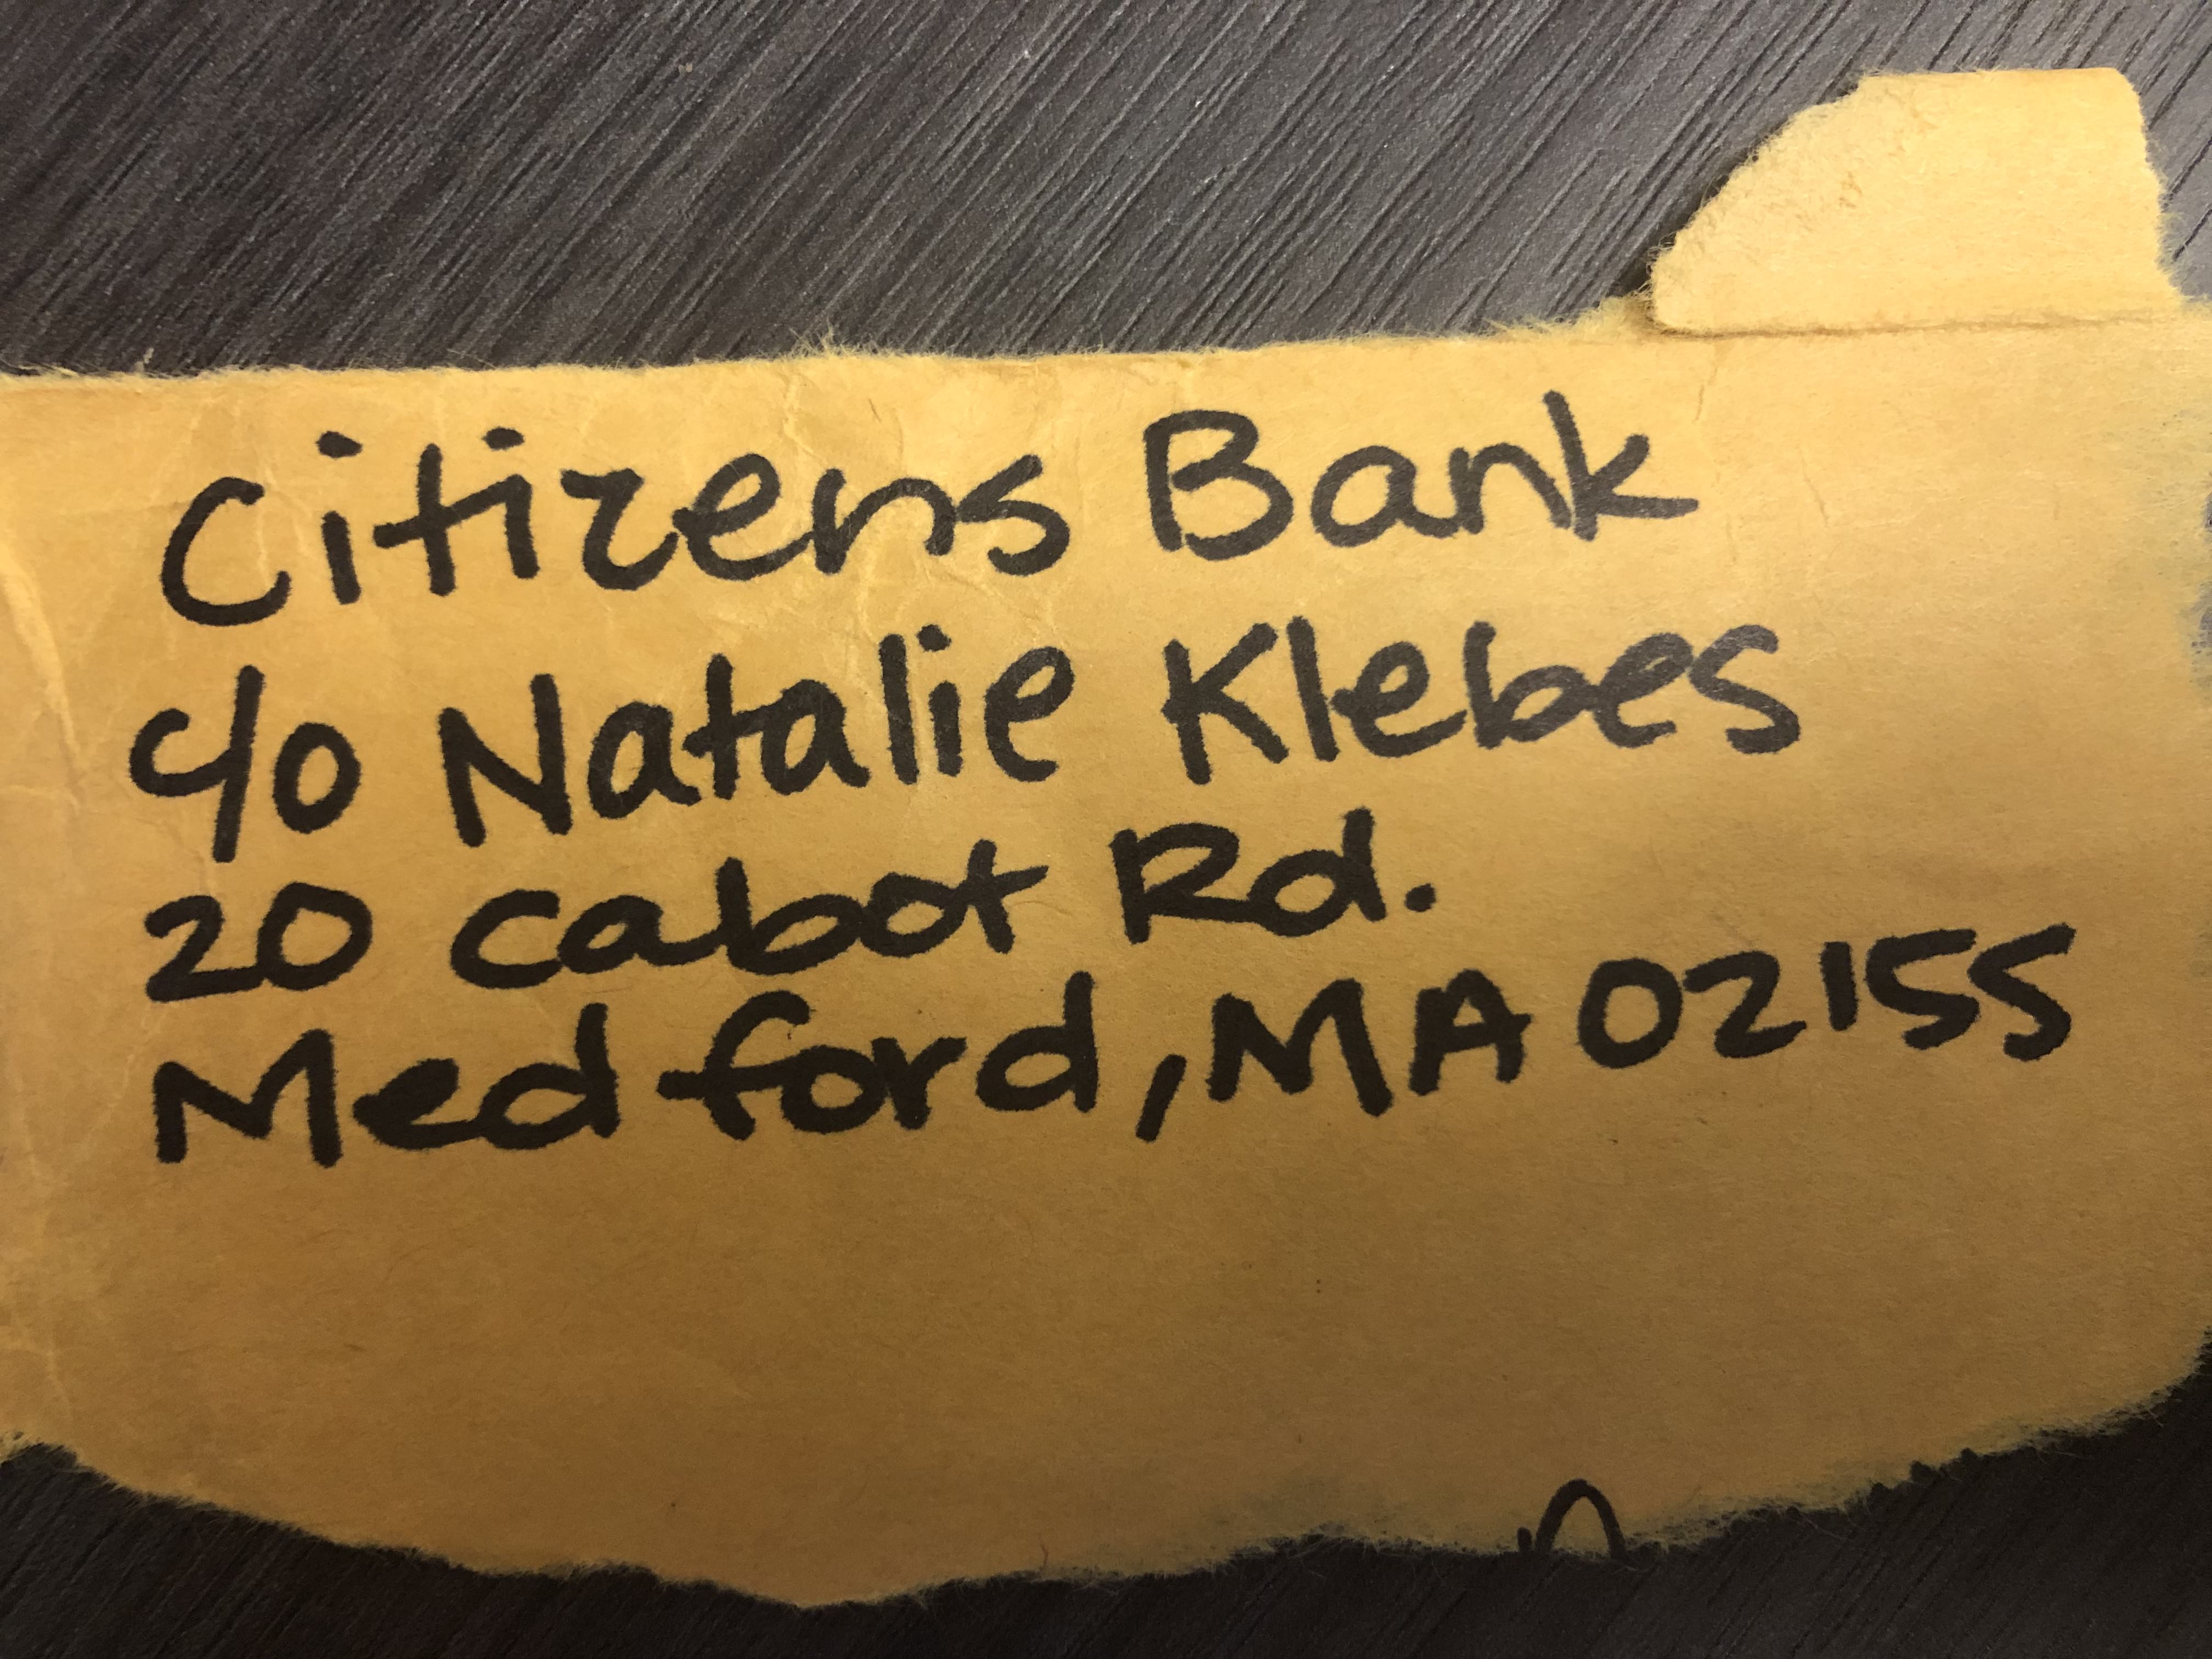 Citizens Bank
c/o Natalie Klebes
20 Cabot Rd.
Medford, MA 02155